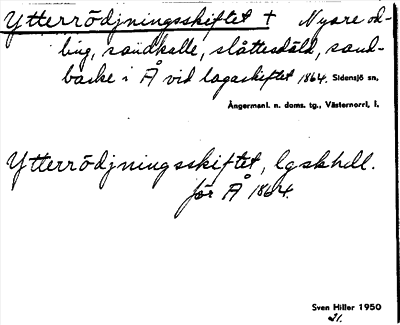 Ytterrödjningsskiftet † Nyare od-
ling, sandkalle, slåttesdäld, sand-
backe i Å vid lagaskiftet 1864. Sidensjö sn,
Ångermanl. n. doms. tg., Västernorrl. l.
Ytterrödjningsskiftet, lgskhdl.
för Å 1864.
Sven Hiller 1950
21.